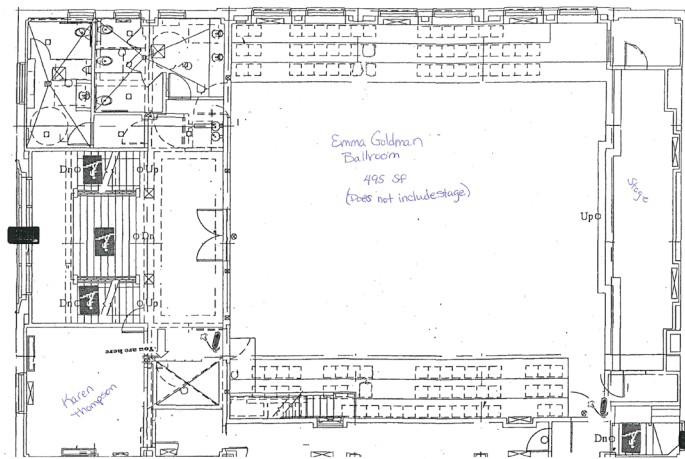 Emma Goldman
Ballroom
495 SF
(Does not include stage)
Stage
Up
Dn
Up
Dn
Dn
Up
You are here
Karen
Thompson
Dn